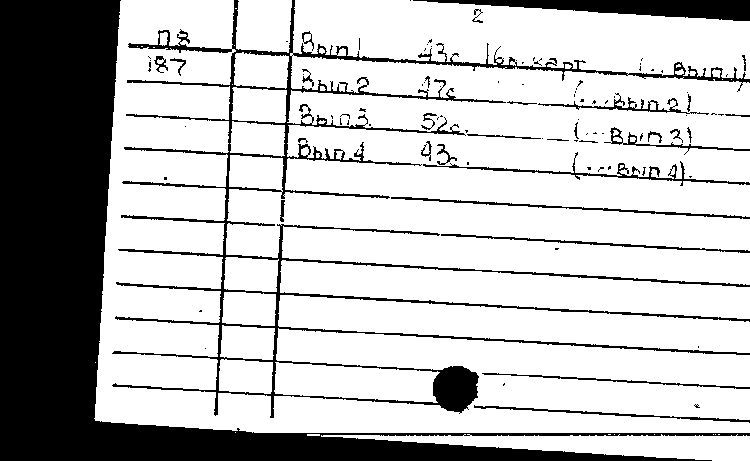 2
П8
187
Вып.1. 43с., 16л. карт (...Вып.1)
Вып.2 47с (...Вып.2)
Вып.3. 52с. (...Вып 3)
Вып.4. 43с. (...Вып 4).